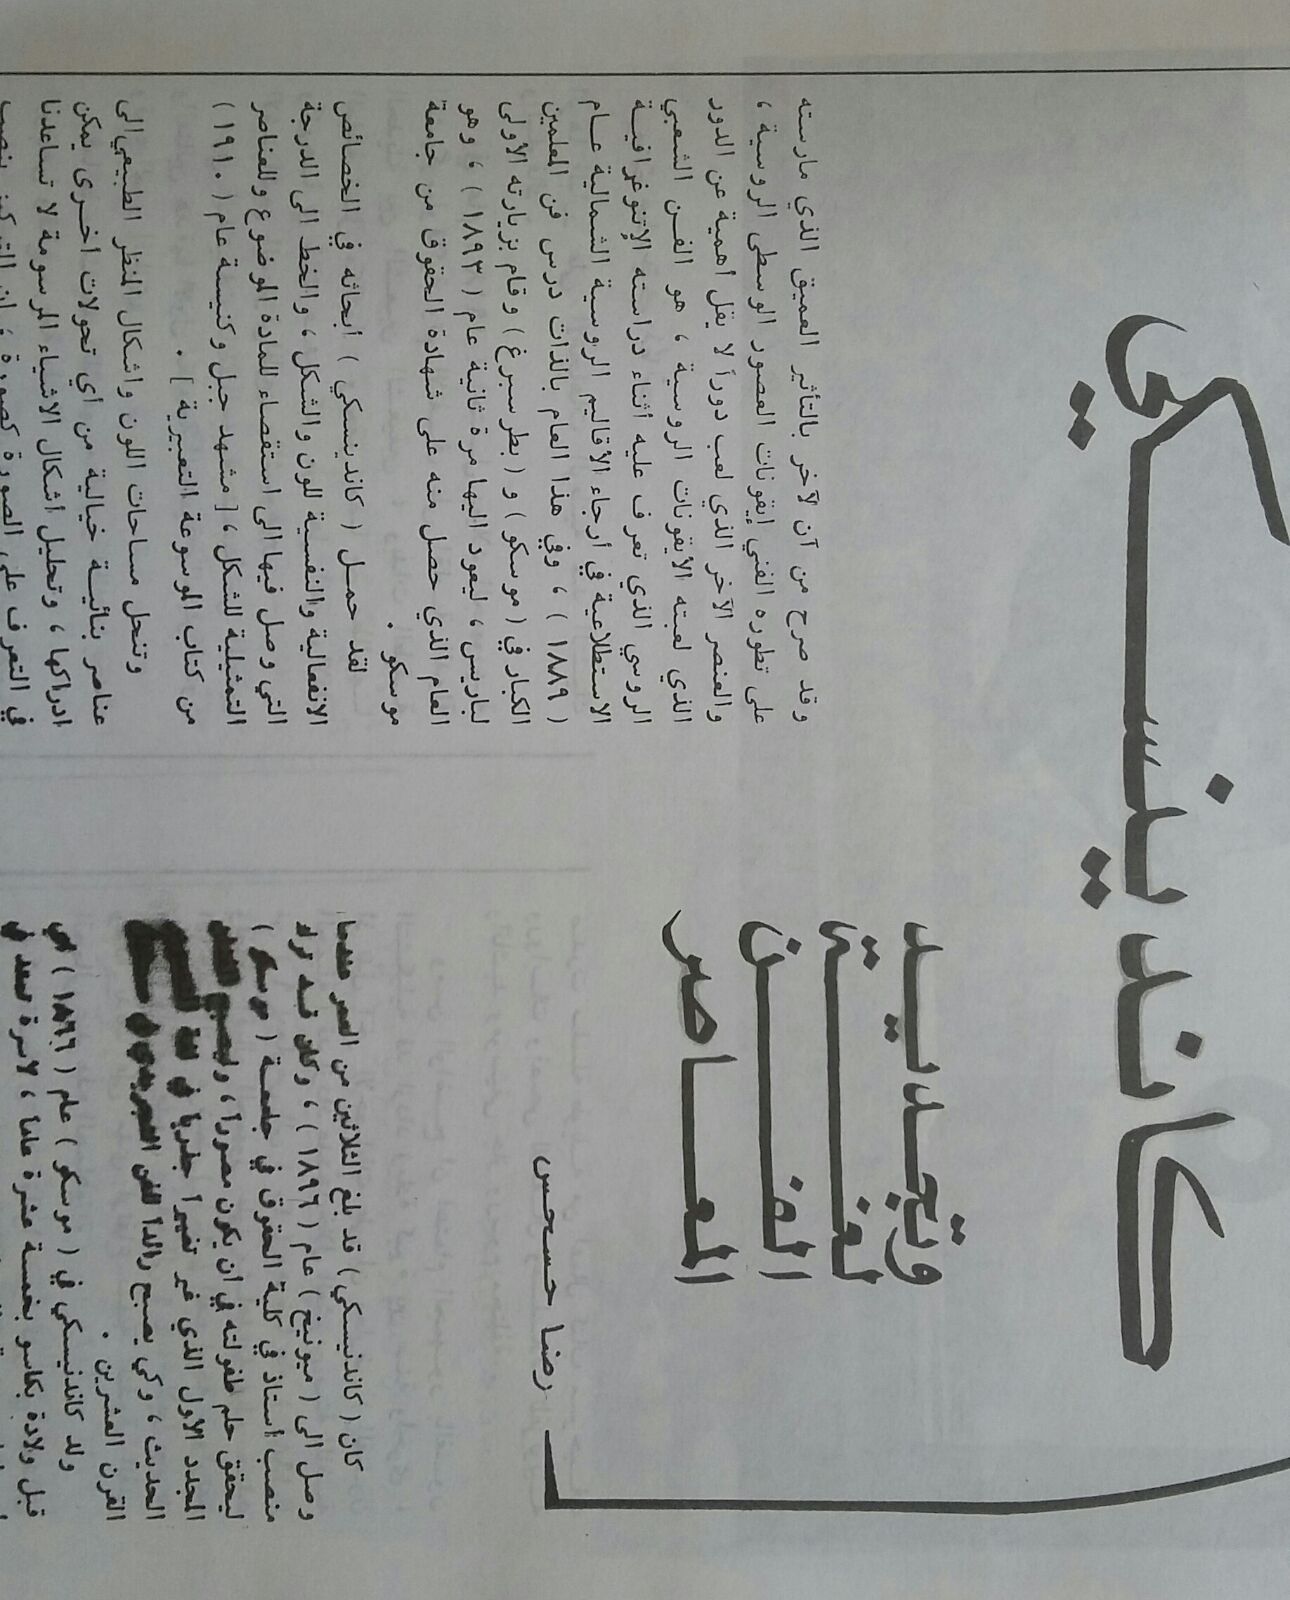 كاندينسكي
وتجديد
لغة
الفن
المعاصر
رضا حسحس
كان ( كاندنيسكي ) قد بلغ الثلاثين من العمر عندما
وصل الى ( ميونيخ ) عام ( ١٨٩٦ ) ، وكان قد ترك
منصب أستاذ في كلية الحقوق في جامعة ( موسكو )
ليحقق حلم طفولته في أن يكون مصوراً ، وليصبح
المجدد الأول الذي غير تغييراً جذرياً في لغة
الحديث ، وكي يصبح رائداً للفن التجريدي في
القرن العشرين .
ولد كاندنيسكي في ( موسكو ) عام ( ١٨٦٦ ) أي
قبل ولادة بكاسو بخمسة عشرة عاماً ، لأسرة
وقد صرح من آن لآخر بالتأثير العميق الذي مارسته
على تطوره الفني إيقونات العصور الوسطى الروسية ،
والعنصر الآخر الذي لعب دوراً لا يقل أهمية عن الدور
الذي لعبته الأيقونات الروسية ، هو الفن الشعبي
الروسي الذي تعرف عليه أثناء دراسته الإتنوغرافية
الاستطلاعية في أرجاء الأقاليم الروسية الشمالية عام
( ١٨٨٩ ) ، وفي هذا العام بالذات درس فن المعلمين
الكبار في ( موسكو ) و ( بطرسبرغ ) وقام بزيارته الأولى
لباريس ، ليعود اليها مرة ثانية عام ( ١٨٩٣ ) ، وهو
العام الذي حصل منه على شهادة الحقوق من جامعة
موسكو .
لقد حمل ( كاندينسكي ) أبحاثه في الخصائص
الانفعالية والنفسية للون والشكل ، والخط الى الدرجة
التي وصل فيها الى استقصاء للمادة الموضوع وللعناصر
التمثيلية للشكل ، [ مشهد جبل وكنيسة عام ( ١٩١٠ )
من كتاب الموسوعة التعبيرية ] .
وتنحل مساحات اللون واشكال المنظر الطبيعي الى
عناصر بنائية خيالية من أي تحولات أخرى يمكن
ادراكها ، وتحليل أشكال الاشياء المرسومة لا تساعدنا
في التعرف على الصورة كصورة ، ان التركيز ينصب